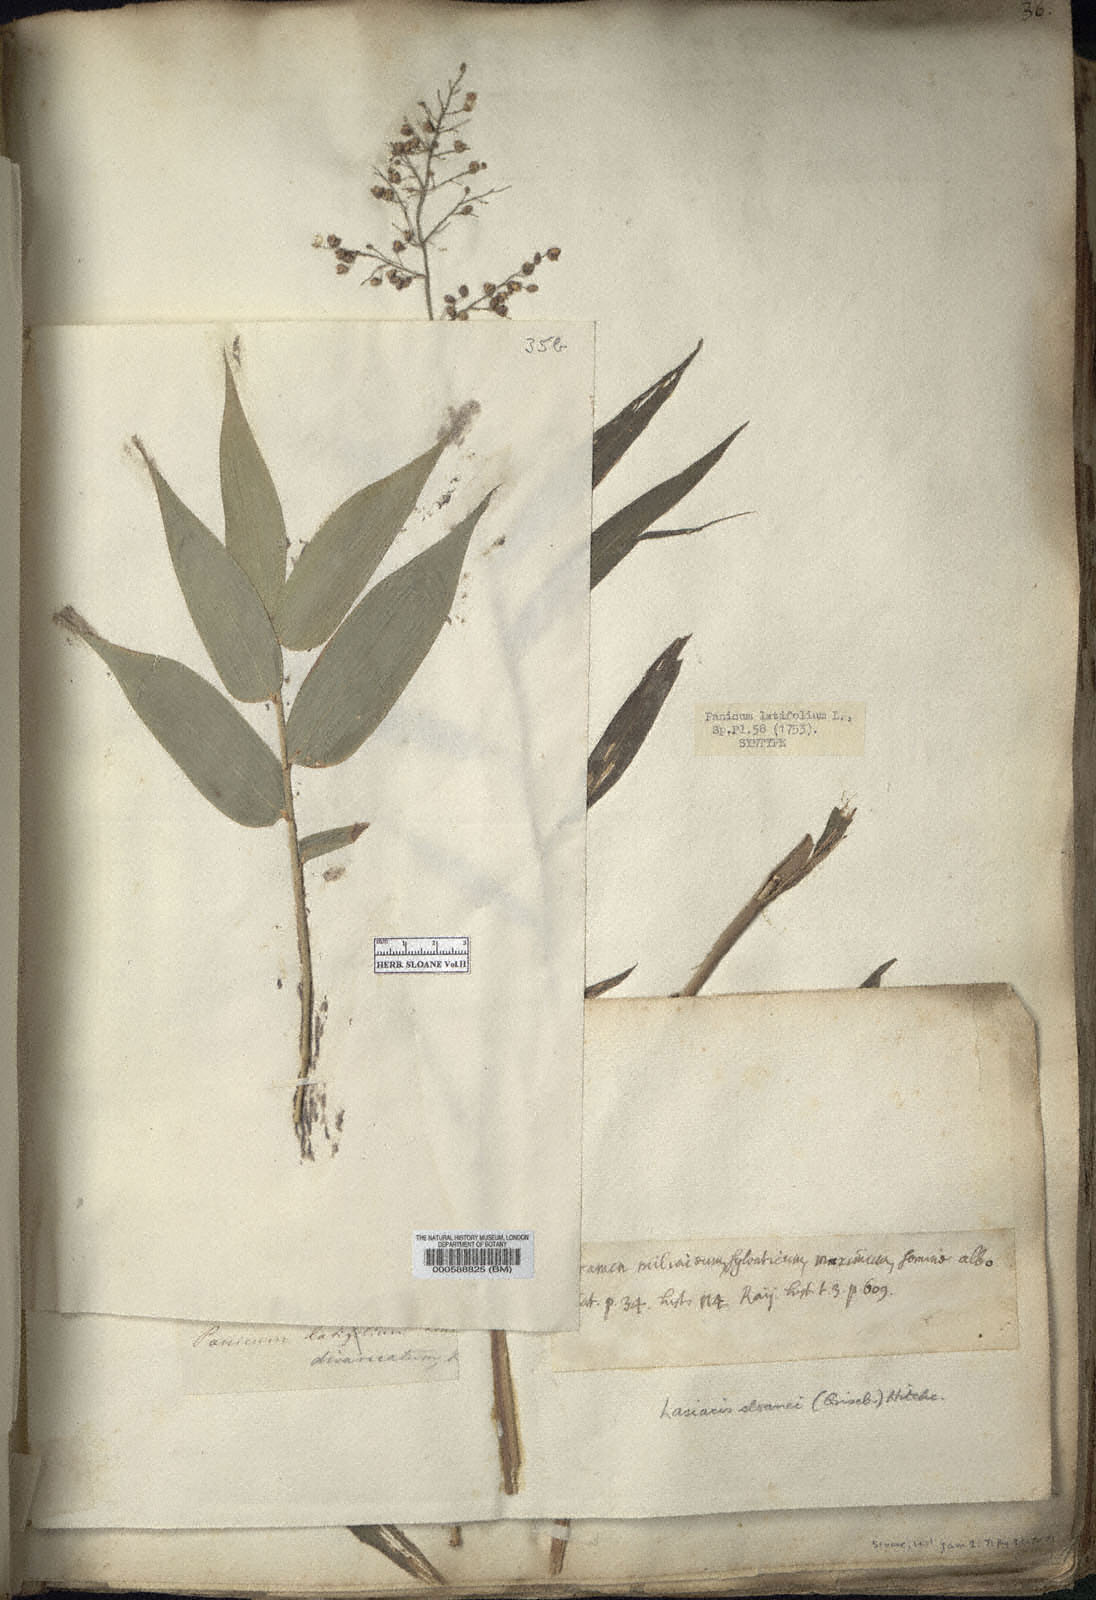 36.
35b
Panicum latifolium L.,
Sp.Pl.58 (1753).
SYNTYPE
mm 1 2 3
HERB. SLOANE Vol.II
THE NATURAL HISTORY MUSEUM, LONDON
DEPARTMENT OF BOTANY
000588825 (BM)
ramen miliaceum, sylvaticum, maximum, semine albo
Cat. p. 34. hist. 114. Raij. hist. t. 3. p 609.
Panicum
divaricatum
Lasiacis sloanei (Griseb.) Hitchc.
Sloane, Hist. Jam 1: 71